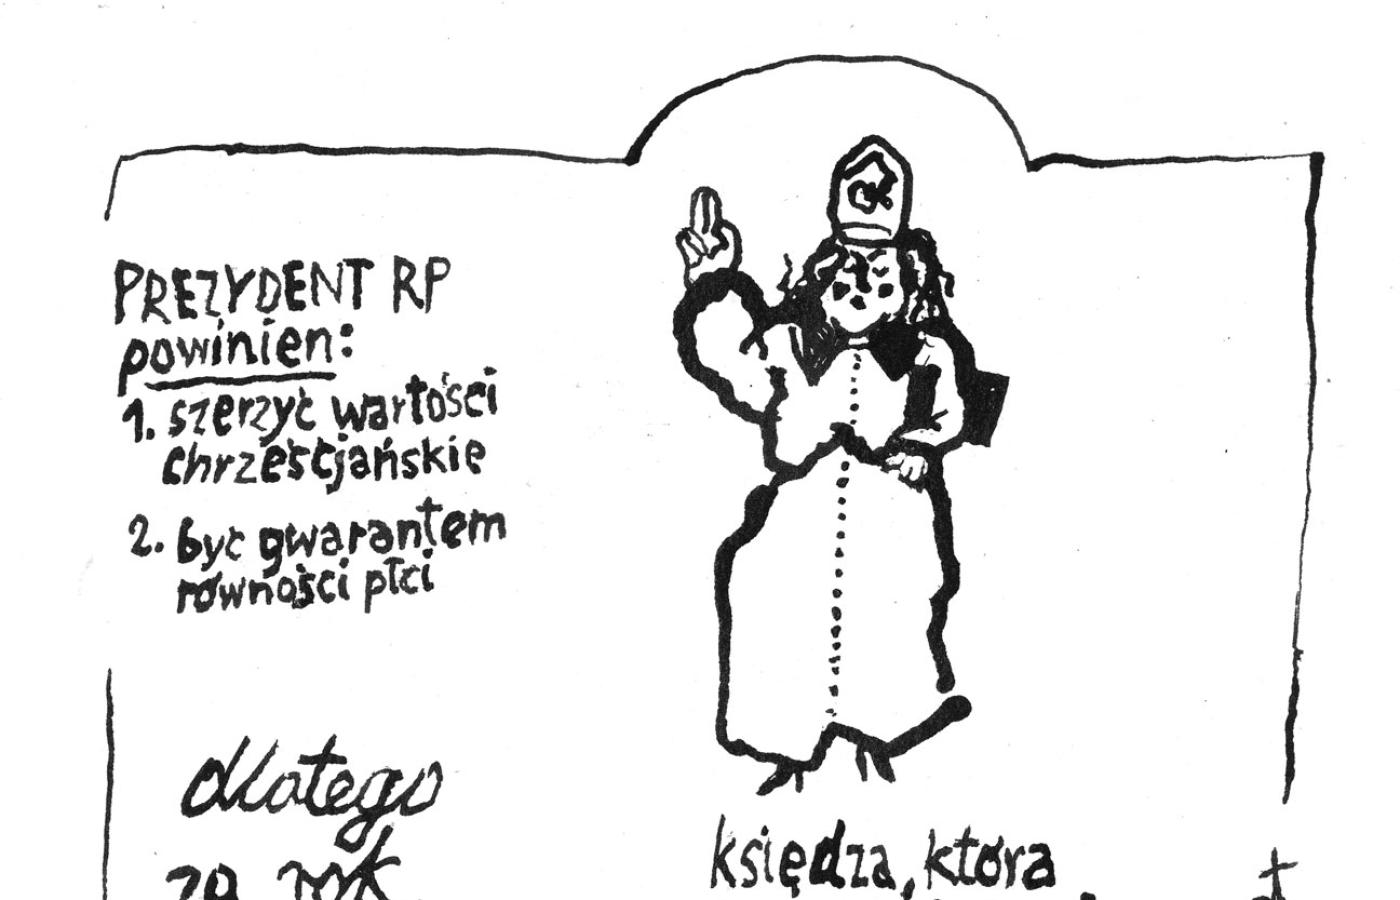 PREZYDENT RP
powinien:
1. szerzyć wartości
chrześcjańskie
2. być gwarantem
równości płci
dlatego
za rok
księdza, która